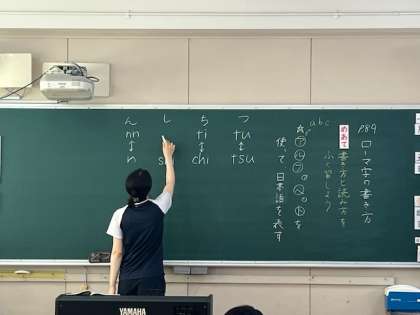 P89 ローマ字の書き方
めあて 書き方と読み方を
ふく習しよう
abc
☆アルファベットを
使って日本語を表す
つ
tu
↕
tsu
ち
ti
↕
chi
し
ん
nn
↕
n
YAMAHA